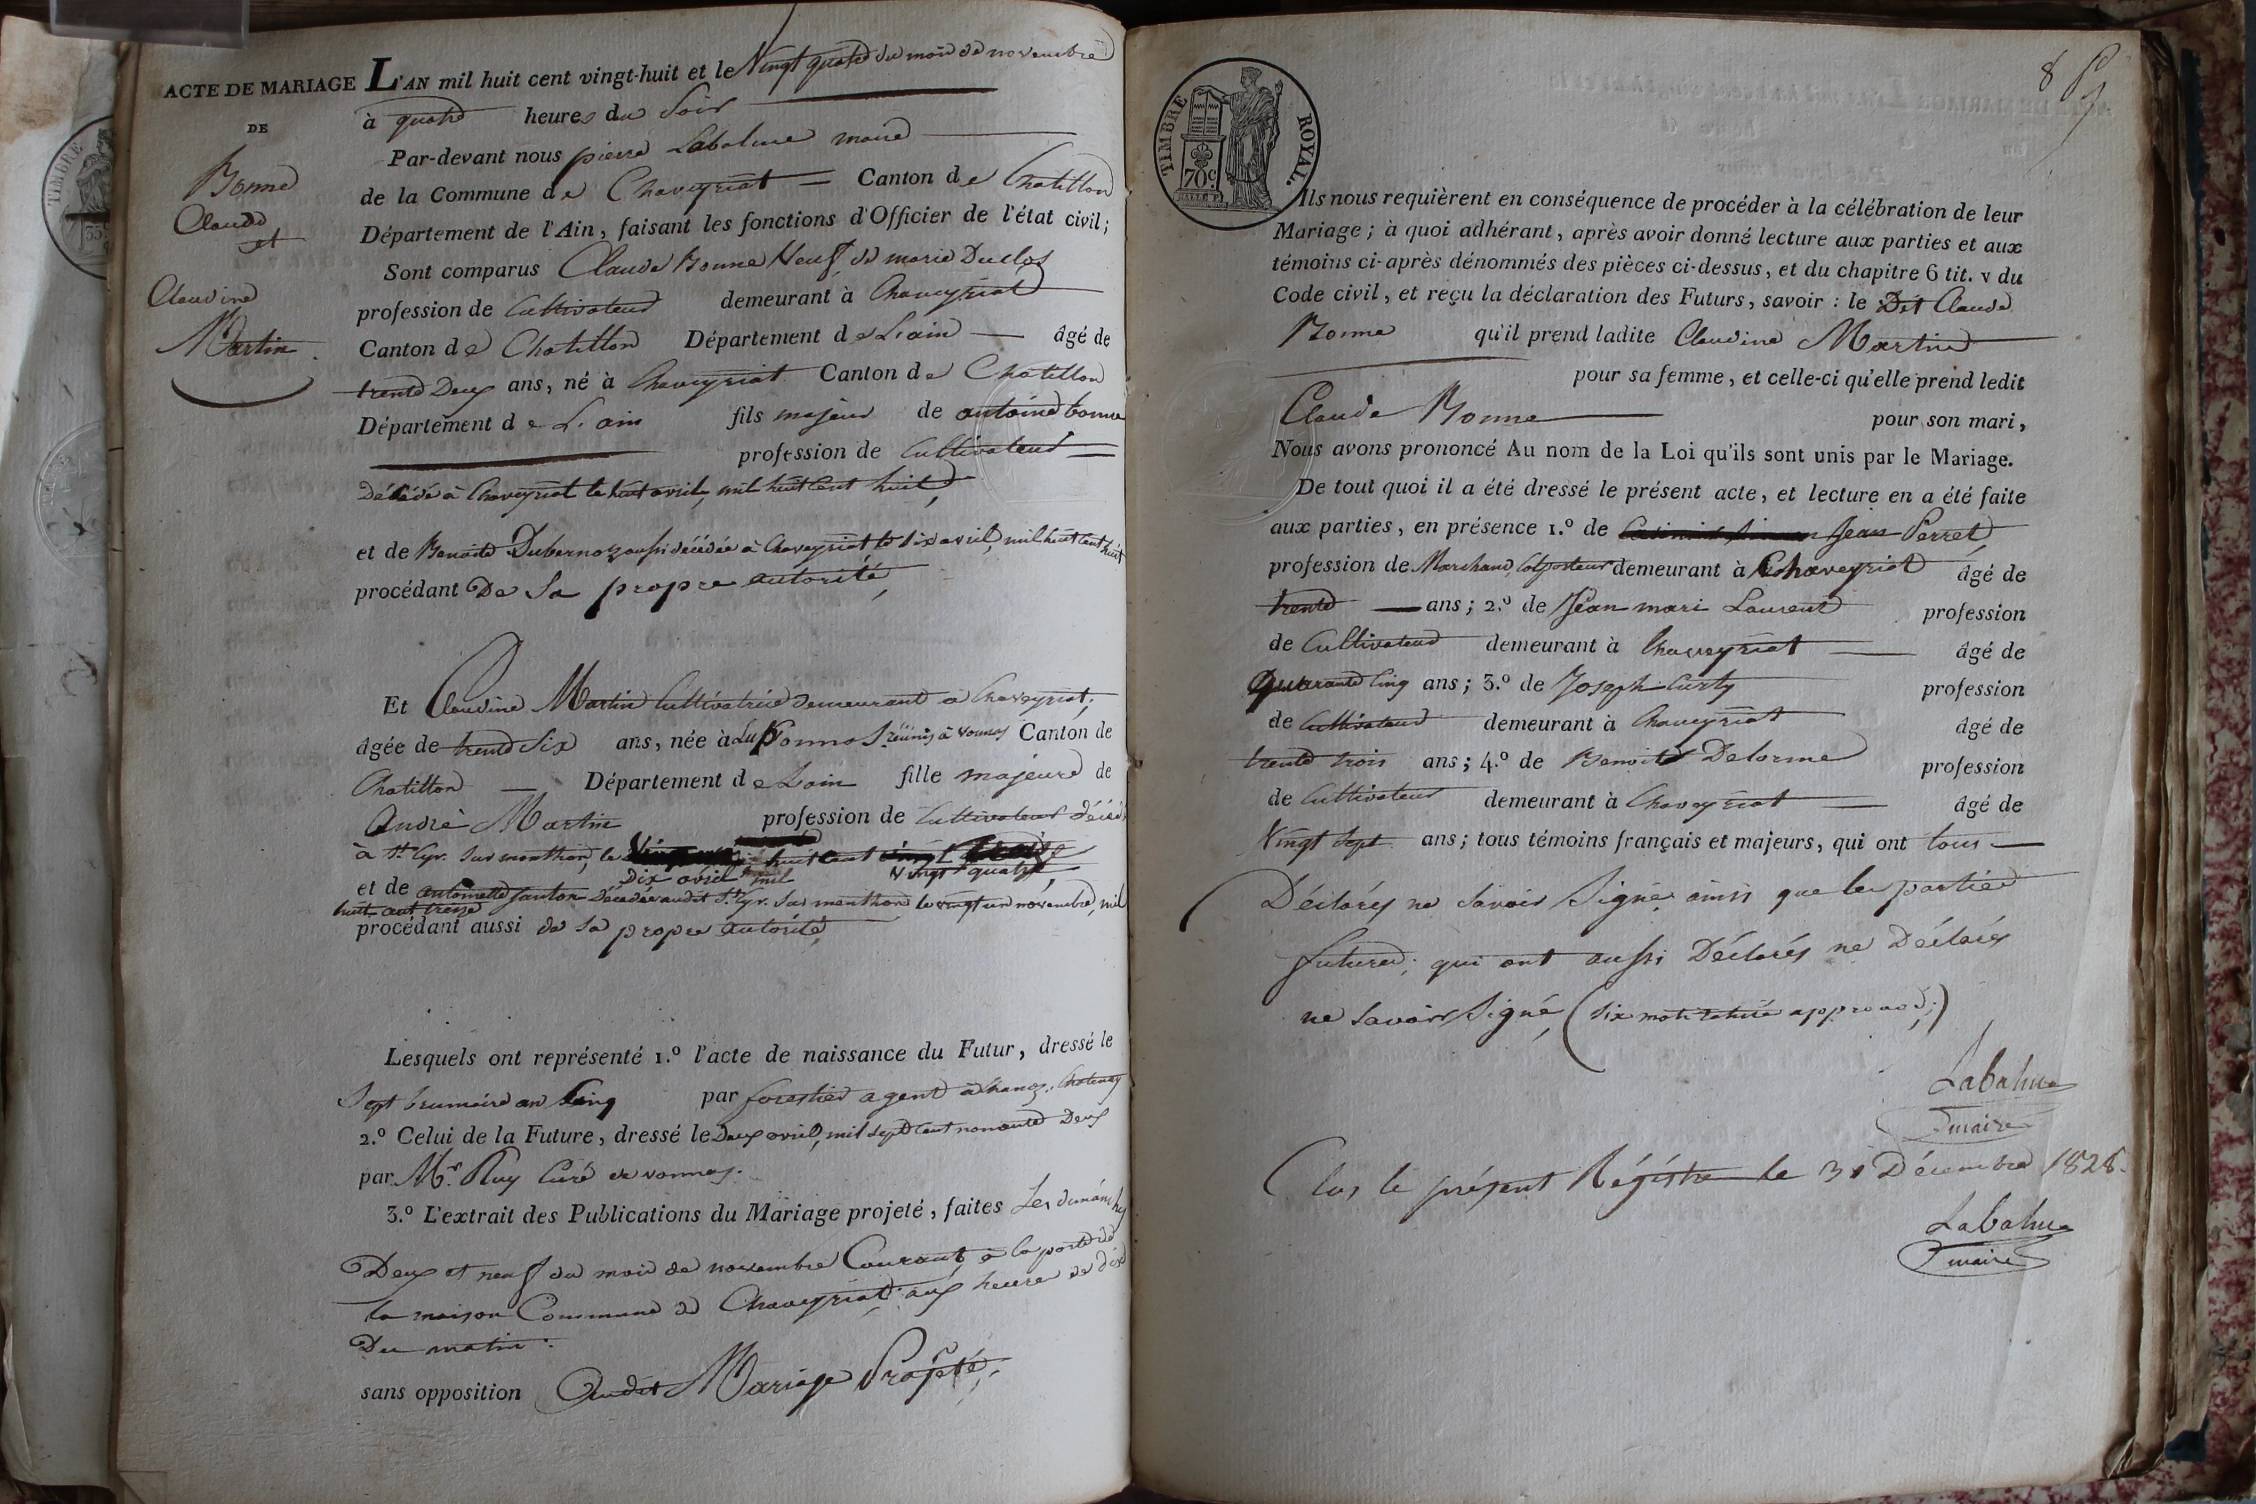 ACTE DE MARIAGE
DE
Bonne
Claude
et
Claudine
Martin
L'AN mil huit cent vingt-huit et le Vingt quatre du mois de novembre
à quatre heures du Soir
Par-devant nous pierre Labalme maire
de la Commune de Chaveyriat Canton de Chatillon
Département de l'Ain, faisant les fonctions d'Officier de l'état civil;
Sont comparus Claude Bonne Veuf de marie Duclos
profession de Cultivateur demeurant à Chaveyriat
Canton de Chatillon Département de L'ain âgé de
trente Deux ans, né à Chaveyriat Canton de Chatillon
Département de L'ain fils majeur de antoine bonne
profession de Cultivateur
Décédé à Chaveyriat le huit avril, mil huit Cent huit,
et de Benoite Dubernoz aussi décédée à Chaveyriat le dix avril, mil huit Cent huit
procédant De Sa propre autorité,
Et Claudine Martin Cultivatrice demeurant a Chaveyriat;
âgée de trente Six ans, née à Luponnas réunis à vonnas Canton de
Chatillon Département de Lain fille majeure de
André Martin profession de Cultivateur Décédé
à St. Cyr. Sur menthon, le huit cent
Dix avril mil vingt quatre,
et de antoinette Janton Décédée audit St. Cyr. Sur menthon le vingt un novembre, mil
huit cent treize
procédant aussi de Sa propre autorité,
Lesquels ont représenté 1.º l'acte de naissance du Futur, dressé le
Sept brumaire an Cinq par forestier agent à Chanoz. Chatenay
2.º Celui de la Future, dressé le Deux avril, mil Sept Cent nonante Deux
par Mr. Ruy Curé de vonnas.
3.º L'extrait des Publications du Mariage projeté, faites Les dimanches
Deux et neuf du mois de novembre Courant, à la porte de
la maison Commune de Chaveyriat aux heure de dix
Du matin.
sans opposition Audit Mariage Projeté;
8
TIMBRE ROYAL.
70c.
Ils nous requièrent en conséquence de procéder à la célébration de leur
Mariage; à quoi adhérant, après avoir donné lecture aux parties et aux
témoins ci-après dénommés des pièces ci-dessus, et du chapitre 6 tit. v du
Code civil, et reçu la déclaration des Futurs, savoir : le Dit Claude
Bonne qu'il prend ladite Claudine Martin
pour sa femme, et celle-ci qu'elle prend ledit
Claude Bonne pour son mari,
Nous avons prononcé Au nom de la Loi qu'ils sont unis par le Mariage.
De tout quoi il a été dressé le présent acte, et lecture en a été faite
aux parties, en présence 1.º de Jean Perret
profession de Marchand, Colporteur demeurant à Chaveyriat âgé de
trente ans; 2.º de Jean mari Laurent profession
de Cultivateur demeurant à Chaveyriat âgé de
Quarante Cinq ans; 3.º de Joseph Curty profession
de Cultivateur demeurant à Chaveyriat âgé de
trente trois ans; 4.º de Benoit Delorme profession
de Cultivateur demeurant à Chaveyriat âgé de
Vingt Sept ans; tous témoins français et majeurs, qui ont tous
Déclarés ne Savoir Signé ainsi que les parties
futures; qui ont aussi Déclarés ne Déclarés
ne Savoir Signé, (Six mots approuvés;)
Labalme
maire
Clos le présent Régistre le 31 Décembre 1828.
Labalme
maire